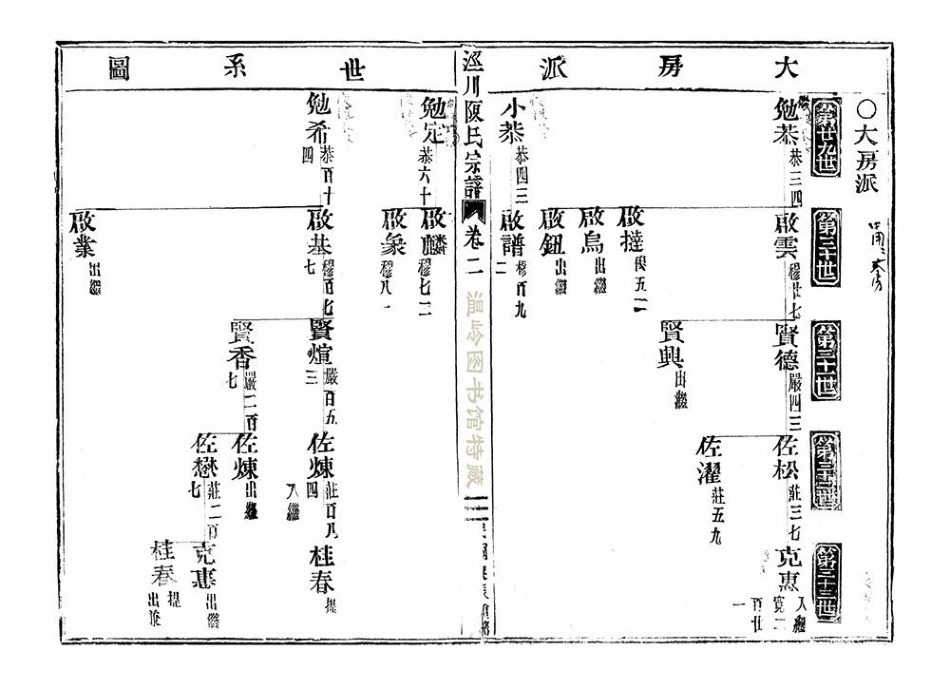 大房派
世系圖
○大房派
第廿九世
第三十世
第三十一世
第三十二世
第三十三世
勉恭 恭三四
啟雲 穆廿七
賢德 嚴四三
佐松 莊三七
克惠 入繼 寬二百廿一
賢興 出繼
佐濯 莊五九
啟撻 穆五二
啟烏 出繼
啟鈕 出繼
小恭 恭四三
啟譜 穆百九二
涇川陳氏宗譜 卷二
温岭图书馆特藏
勉定 恭六十
啟麟 穆七二
啟象 穆八一
勉希 恭百十四
啟基 穆百七七
賢煊 嚴百五三
佐煉 莊百八四 入繼
桂春 提
賢香 嚴二百七
佐煉 出繼
佐懋 莊二百七
克惠 出繼
桂春 提 出兼
啟業 出繼